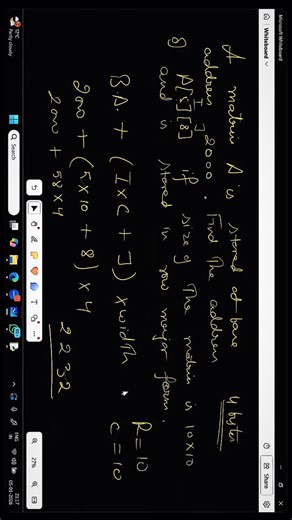 Microsoft Whiteboard
Whiteboard
Share
A matrix A is stored at base
address 2000. Find the address 4 bytes
I J
of A[5][8] if size of the matrix is 10x10
and is stored in row major form.
R=10
C=10
B.A + (I x C + J) x width.
2000 + (5x10 + 8) x 4
2000 + 58x4 2232
27%
12°C
Partly cloudy
Search
ENG
IN
21:17
05-01-2026